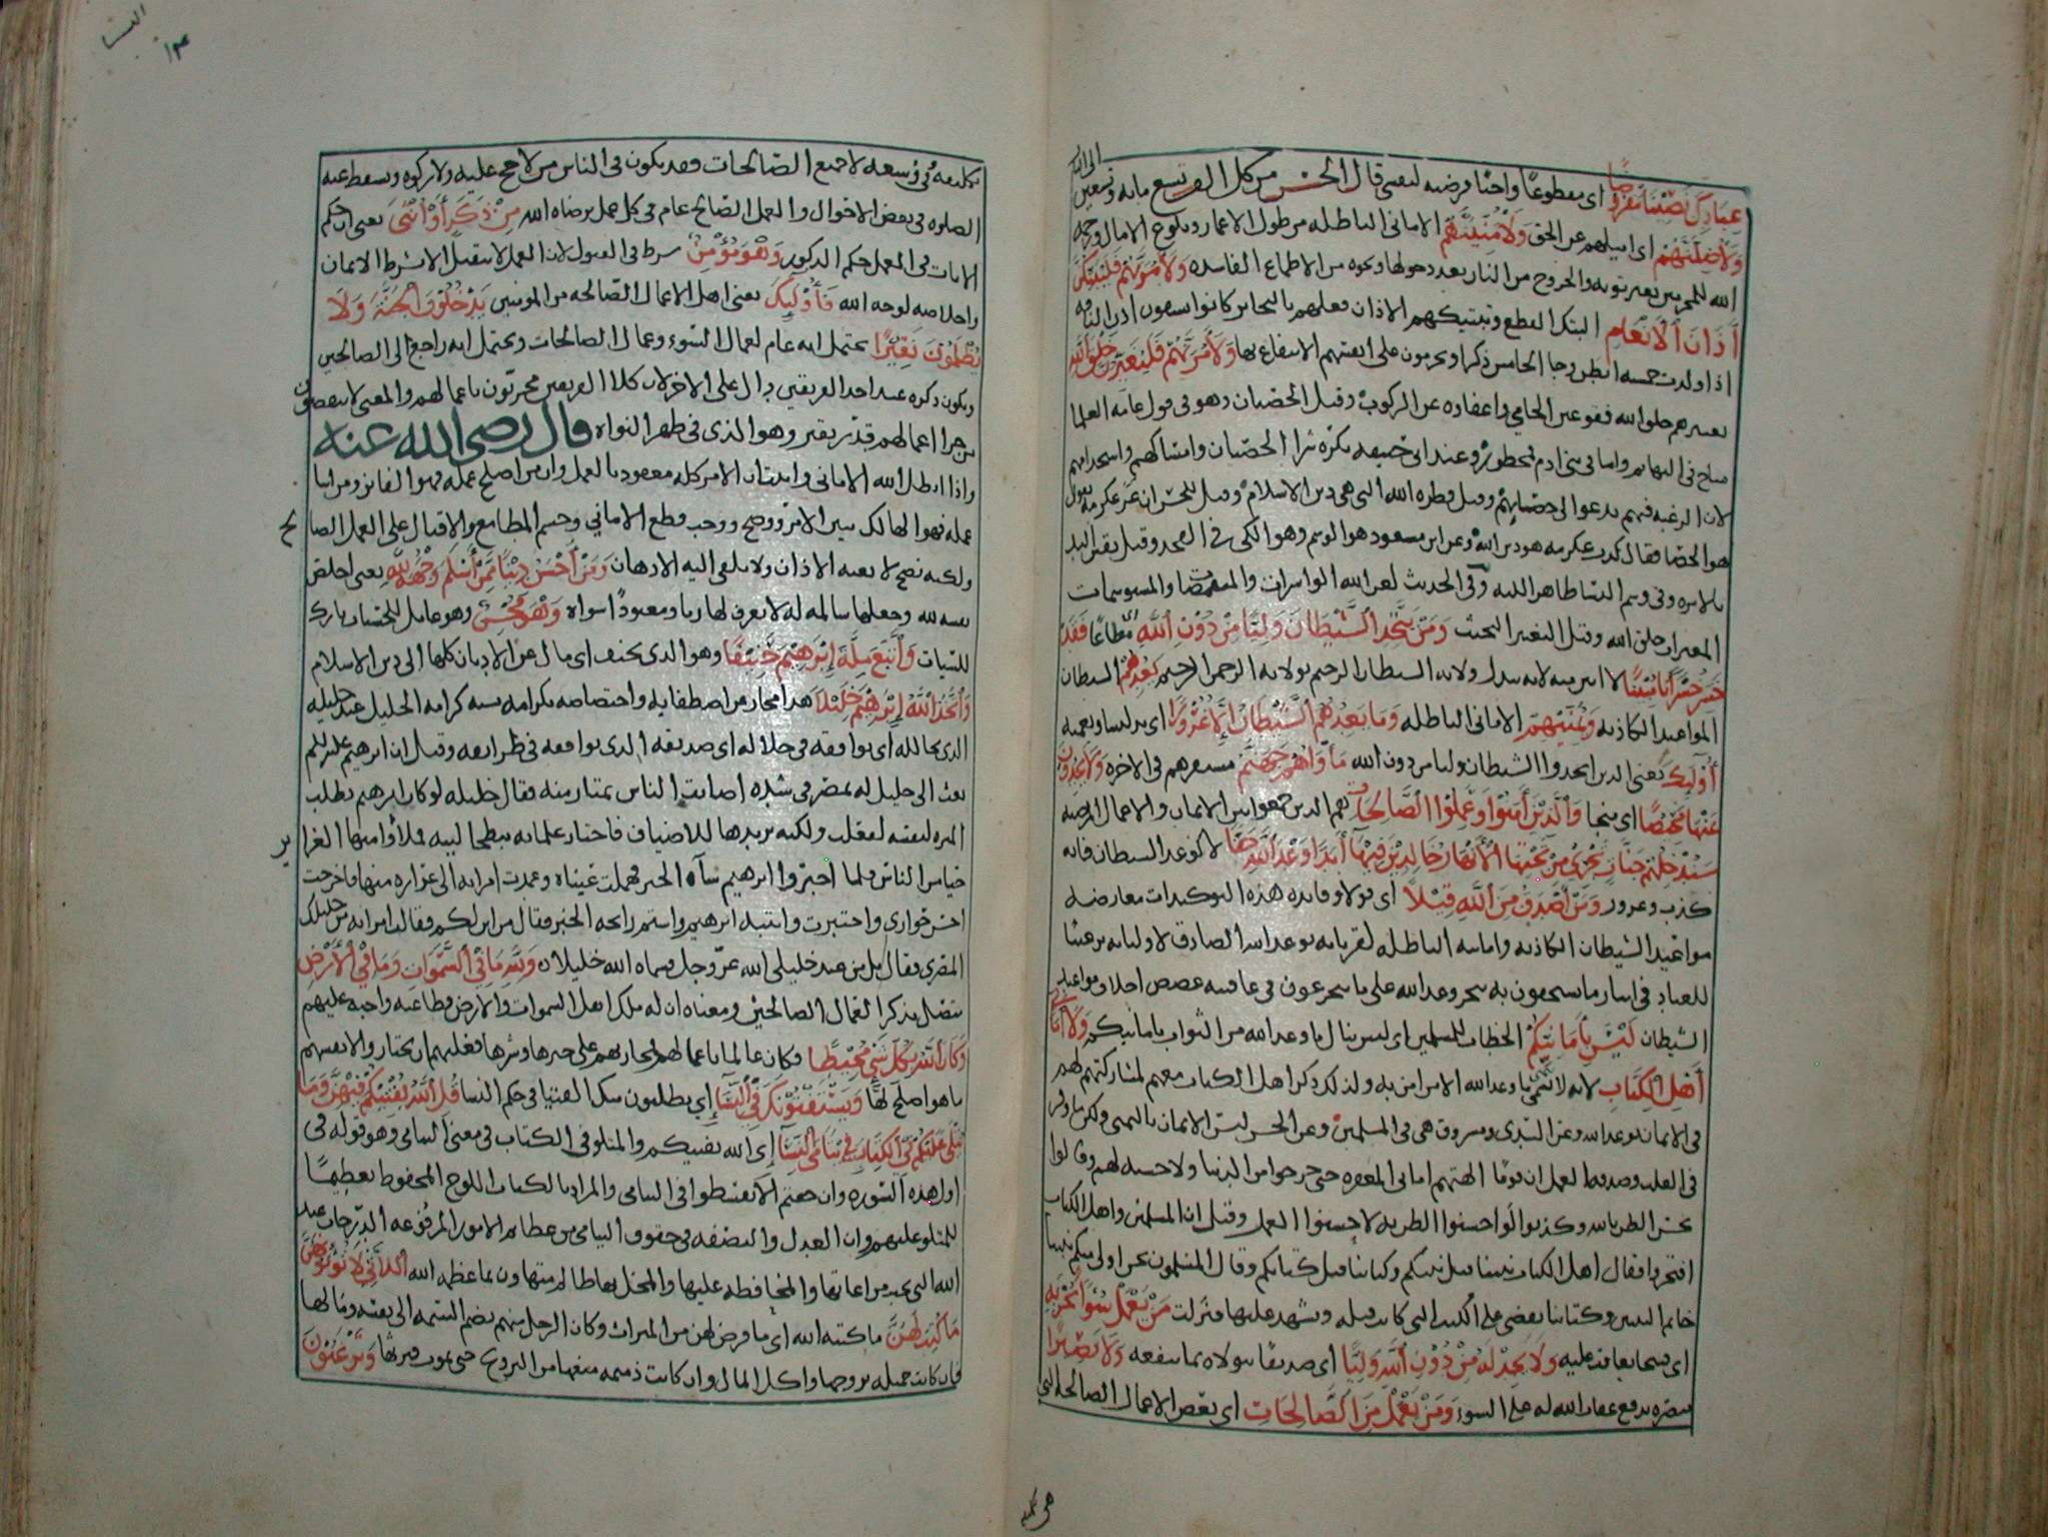 عِبَادِكَ نَصِيْبًا مَفْرُوضًا اى مقطوعًا واجبا فرضته لنفسى قال الحسن من كل الف تسع مايه وتسعين
الى النار
وَلَأُضِلَّنَّهُمْ اى اميلهم عن الحق وَلَأُمَنِّيَنَّهُمْ الامانى الباطله من طول الاعمار وبلوغ الامال ورحمه
الله للمجرمين بغير توبه والخروج من النار بعد دخولها ونحوه من الاطماع الفاسده وَلَآمُرَنَّهُمْ فَلَيُبَتِّكُنَّ
آذَانَ الْأَنْعَامِ البتك القطع وتبتيكهم الاذان فعلهم بالبحائر كانوا يشقون اذن الناقه
اذا ولدت خمسه ابطن وجا الخامس ذكرا وحرمون على انفسهم الانتفاع بها وَلَآمُرَنَّهُمْ فَلَيُغَيِّرُنَّ خَلْقَ اللَّهِ
تغييرهم خلق الله فقو عين الحامى واعفاوه عن الركوب وقيل الخصيان وهو فى قول عامه العلما
مباح فى البهايم واما فى بنى ادم فمحظور وعند ابى حنيفه يكره شرا الخصيان وامساكهم واستخدامهم
لان الرغبه فيهم تدعوا الى خصايهم وقيل فطره الله التى هى دين الاسلام وقيل للحسن ان عكرمه يقول
هو الخصا فقال كذب عكرمه هو دين الله وعن ابن مسعود هو الوشم وهو الكى فى الصحد وقيل بغرز اليد
بالابره وفى وشم النسا ظاهر اللثه وفى الحديث لعن الله الواشرات والمتنمصات والمستوشمات
المغيرات خلق الله وقيل التغيير التخنث وَمَنْ يَتَّخِذِ الشَّيْطَانَ وَلِيًّا مِنْ دُوْنِ اللَّهِ مطاعًا فَقَدْ
خَسِرَ خُسْرَانًا مُبِيْنًا لا ابين منه لانه بدل ولايه الشيطان الرجيم بولايه الرحمن الرحيم يَعِدُهُمْ الشيطان
المواعيد الكاذبه وَيُمَنِّيْهِمْ الامانى الباطله وَمَا يَعِدُهُمُ الشَّيْطَانُ إِلَّا غُرُوْرًا اى تدليسا وتعميه
أُوْلَئِكَ يعنى الذين اتخذوا الشيطان وليا من دون الله مَأْوَاهُمْ جَهَنَّمُ مستقرهم فى الاخره وَلَا يَجِدُوْنَ
عَنْهَا مَحِيْصًا اى منجا وَالَّذِيْنَ آمَنُوْا وَعَمِلُوْا الصَّالِحَاتِ هم الذين جمعوا بين الايمان والاعمال المرضيه
سَنُدْخِلُهُمْ جَنَّاتٍ تَجْرِيْ مِنْ تَحْتِهَا الْأَنْهَارُ خَالِدِيْنَ فِيْهَا أَبَدًا وَعْدَ اللَّهِ حَقًّا لا كوعد الشيطان فانه
كذب وغرور وَمَنْ أَصْدَقُ مِنَ اللَّهِ قِيْلًا اى قولا وفايده هذه التوكيدات معارضه
مواعيد الشيطان الكاذبه وامانيه الباطله لقرنايه بوعد الله الصادق لاوليايه ترغيبًا
للعباد فى ايثار ما يستحقون به تنجز وعد الله على ما يتجرعون فى عاقبته غصص اخلاف مواعيد
الشيطان لَيْسَ بِأَمَانِيِّكُمْ الخطاب للمسلمين اى ليس ينال ما وعد الله من الثواب بامانيكم وَلَا أَمَانِيِّ
أَهْلِ الْكِتَابِ لانه لا يتمنى ما وعد الله الا من امن به ولذلك ذكر اهل الكتاب معهم لمشاركتهم لهم
فى الايمان بوعد الله وعن السدى ومسروق هى فى المسلمين وعن الحسن ليس الايمان بالتمنى ولكن ما وقر
فى القلب وصدقه العمل ان قومًا الهتهم امانى المغفره حتى خرجوا من الدنيا ولا حسنه لهم وقالوا
نحسن الظن بالله وكذبوا لو احسنوا الظن به لاحسنوا العمل وقيل ان المسلمين واهل الكتاب
افتخروا فقال اهل الكتاب نبينا قبل نبيكم وكتابنا قبل كتابكم وقال المسلمون نحن اولى منكم نبينا
خاتم النبيين وكتابنا يقضى على الكتب التى كانت قبله ويشهد عليها فنزلت مَنْ يَعْمَلْ سُوْءًا يُجْزَ بِهِ
اى يعاقب عليه وَلَا يَجِدْ لَهُ مِنْ دُوْنِ اللَّهِ وَلِيًّا اى صديقا يتولاه بما ينفعه وَلَا نَصِيْرًا
ينصره بدفع عقاب الله له على السوء وَمَنْ يَعْمَلْ مِنَ الصَّالِحَاتِ اى بعض الاعمال الصالحه التى
هى تكليفه
النسا
تكليفه فى وسعه لا جميع الصالحات وقد يكون فى الناس من لا حج عليه ولا زكوه وتسقط عنه
الصلوه فى بعض الاحوال والعمل الصالح عام فى كل عمل يرضاه الله مِنْ ذَكَرٍ أَوْ أُنْثَى يعنى ان حكم
الاناث فى العمل حكم الذكور وَهُوَ مُؤْمِنٌ شرط فى القبول لان العمل لا يتقبل الا بشرط الايمان
واخلاصه لوجه الله فَأُوْلَئِكَ يعنى اهل الاعمال الصالحه من المومنين يَدْخُلُوْنَ الْجَنَّةَ وَلَا
يُظْلَمُوْنَ نَقِيْرًا يحتمل انه عام لعمال السوء وعمال الصالحات ويحتمل انه راجع الى الصالحين
ويكون ذكره عند احد الفريقين دال على الاخر لان كلا الفريقين مجزيون باعمالهم والمعنى لا ينقصون
من جزا اعمالهم قدر نقير وهو الذى فى ظهر النواه قال رضى الله عنه
واذا ابطل الله الامانى واثبت ان الامر كله معقود بالعمل وان من اصلح عمله فهو الفايز ومن اسا
عمله فهو الهالك تبين الامر ووضح ووجب قطع الامانى وحسم المطامع والاقبال على العمل الصالح
ولكنه نصح لا تعيه الاذان ولا تلقى اليه الاذهان وَمَنْ أَحْسَنُ دِيْنًا مِمَّنْ أَسْلَمَ وَجْهَهُ لِلَّهِ يعنى اخلص
نفسه لله وجعلها سالمه له لا يعرف لها ربا ومعبودًا سواه وَهُوَ مُحْسِنٌ وهو عامل للحسنات تارك
للسيات وَاتَّبَعَ مِلَّةَ إِبْرَهِيْمَ حَنِيْفًا وهو الذى تحنف اى مال عن الاديان كلها الى دين الاسلام
وَاتَّخَذَ اللَّهُ إِبْرَهِيْمَ خَلِيْلًا هذا مجاز من اصطفايه واختصاصه بكرامه تشبه كرامه الخليل عند خليله
الذى يخالله اى يوافقه فى خلاله اى صديقه الذى يوافقه فى طرايقه وقيل ان ابرهيم عليه السلم
بعث الى خليل له بمصر فى شده اصابت الناس يمتار منه فقال خليله لو كان ابرهيم يطلب
الميره لنفسه لفعلت ولكنه يريدها للاضياف فاجتاز غلمانه ببطحا لينه فملاوا منها الغراير
حيا من الناس فلما اخبروا ابرهيم ساه الخبر فحملته عيناه وعمدت امراته الى غراره منها فاخرجت
احسن حوارى واختبزت وانتبه ابرهيم واشتم رايحه الخبز فقال من اين لكم فقالت امراته من خليلك
المصرى فقال بل من عند خليلى الله عز وجل فسماه الله خليلا وَلِلَّهِ مَا فِي السَّمَوَاتِ وَمَا فِي الْأَرْضِ
متصل بذكر العمال الصالحين ومعناه ان له ملك اهل السموات والارض فطاعته واجبه عليهم
وَكَانَ اللَّهُ بِكُلِّ شَيْءٍ مُحِيْطًا فكان عالما باعمالهم فمجازيهم على خيرها وشرها فعليهم ان يختاروا لانفسهم
ما هو اصلح لها وَيَسْتَفْتُوْنَكَ فِي النِّسَآءِ اى يطلبون منك الفتيا فى حكم النسا قُلِ اللَّهُ يُفْتِيْكُمْ فِيْهِنَّ وَمَا
يُتْلَى عَلَيْكُمْ فِي الْكِتَابِ فِي يَتَامَى النِّسَآءِ اى الله يفتيكم والمتلو فى الكتاب فى معنى اليتامى وهو قوله فى
اول هذه السوره وان خفتم الا تقسطوا فى اليتامى والمراد بالكتاب اللوح المحفوظ تعظيمًا
للمتلو عليهم وان العدل والنصفه فى حقوق اليتامى من عظايم الامور المرفوعه الدرجات عند
الله التى تجب مراعاتها والمحافظه عليها والمخل بها ظالم متهاون بما عظمه الله اللَّاتِيْ لَا تُؤْتُوْنَهُنَّ
مَا كُتِبَ لَهُنَّ ما كتبه الله اى ما فرض لهن من الميراث وكان الرجل منهم يضم اليتيمه الى نفسه ومالها
فان كانت جميله تزوجها واكل المال وان كانت ذميمه منعها من التزويج حتى تموت فيرثها وَتَرْغَبُوْنَ